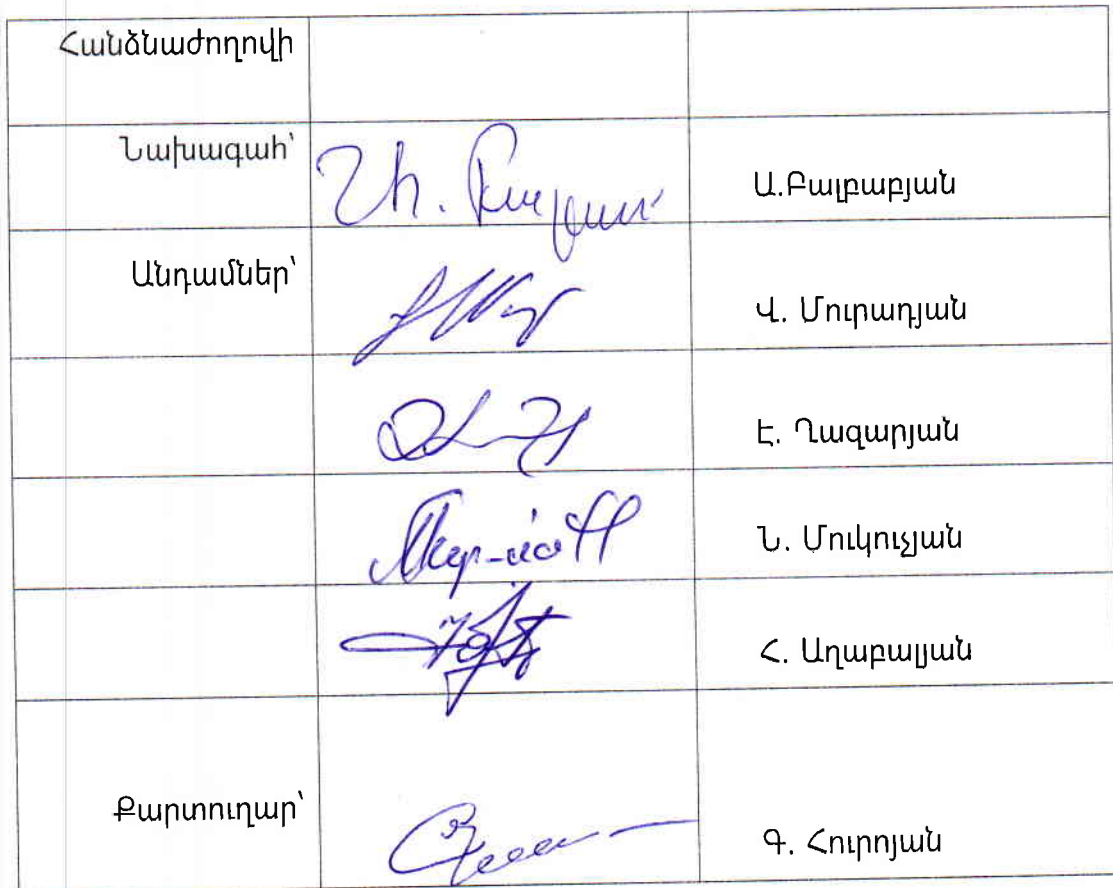 Հանձնաժողովի
Նախագահ՝ Ա.Բալբաբյան
Անդամներ՝ Վ. Մուրադյան
Է. Ղազարյան
Ն. Մուկուչյան
Հ. Աղաբալյան
Քարտուղար՝ Գ. Հուրոյան